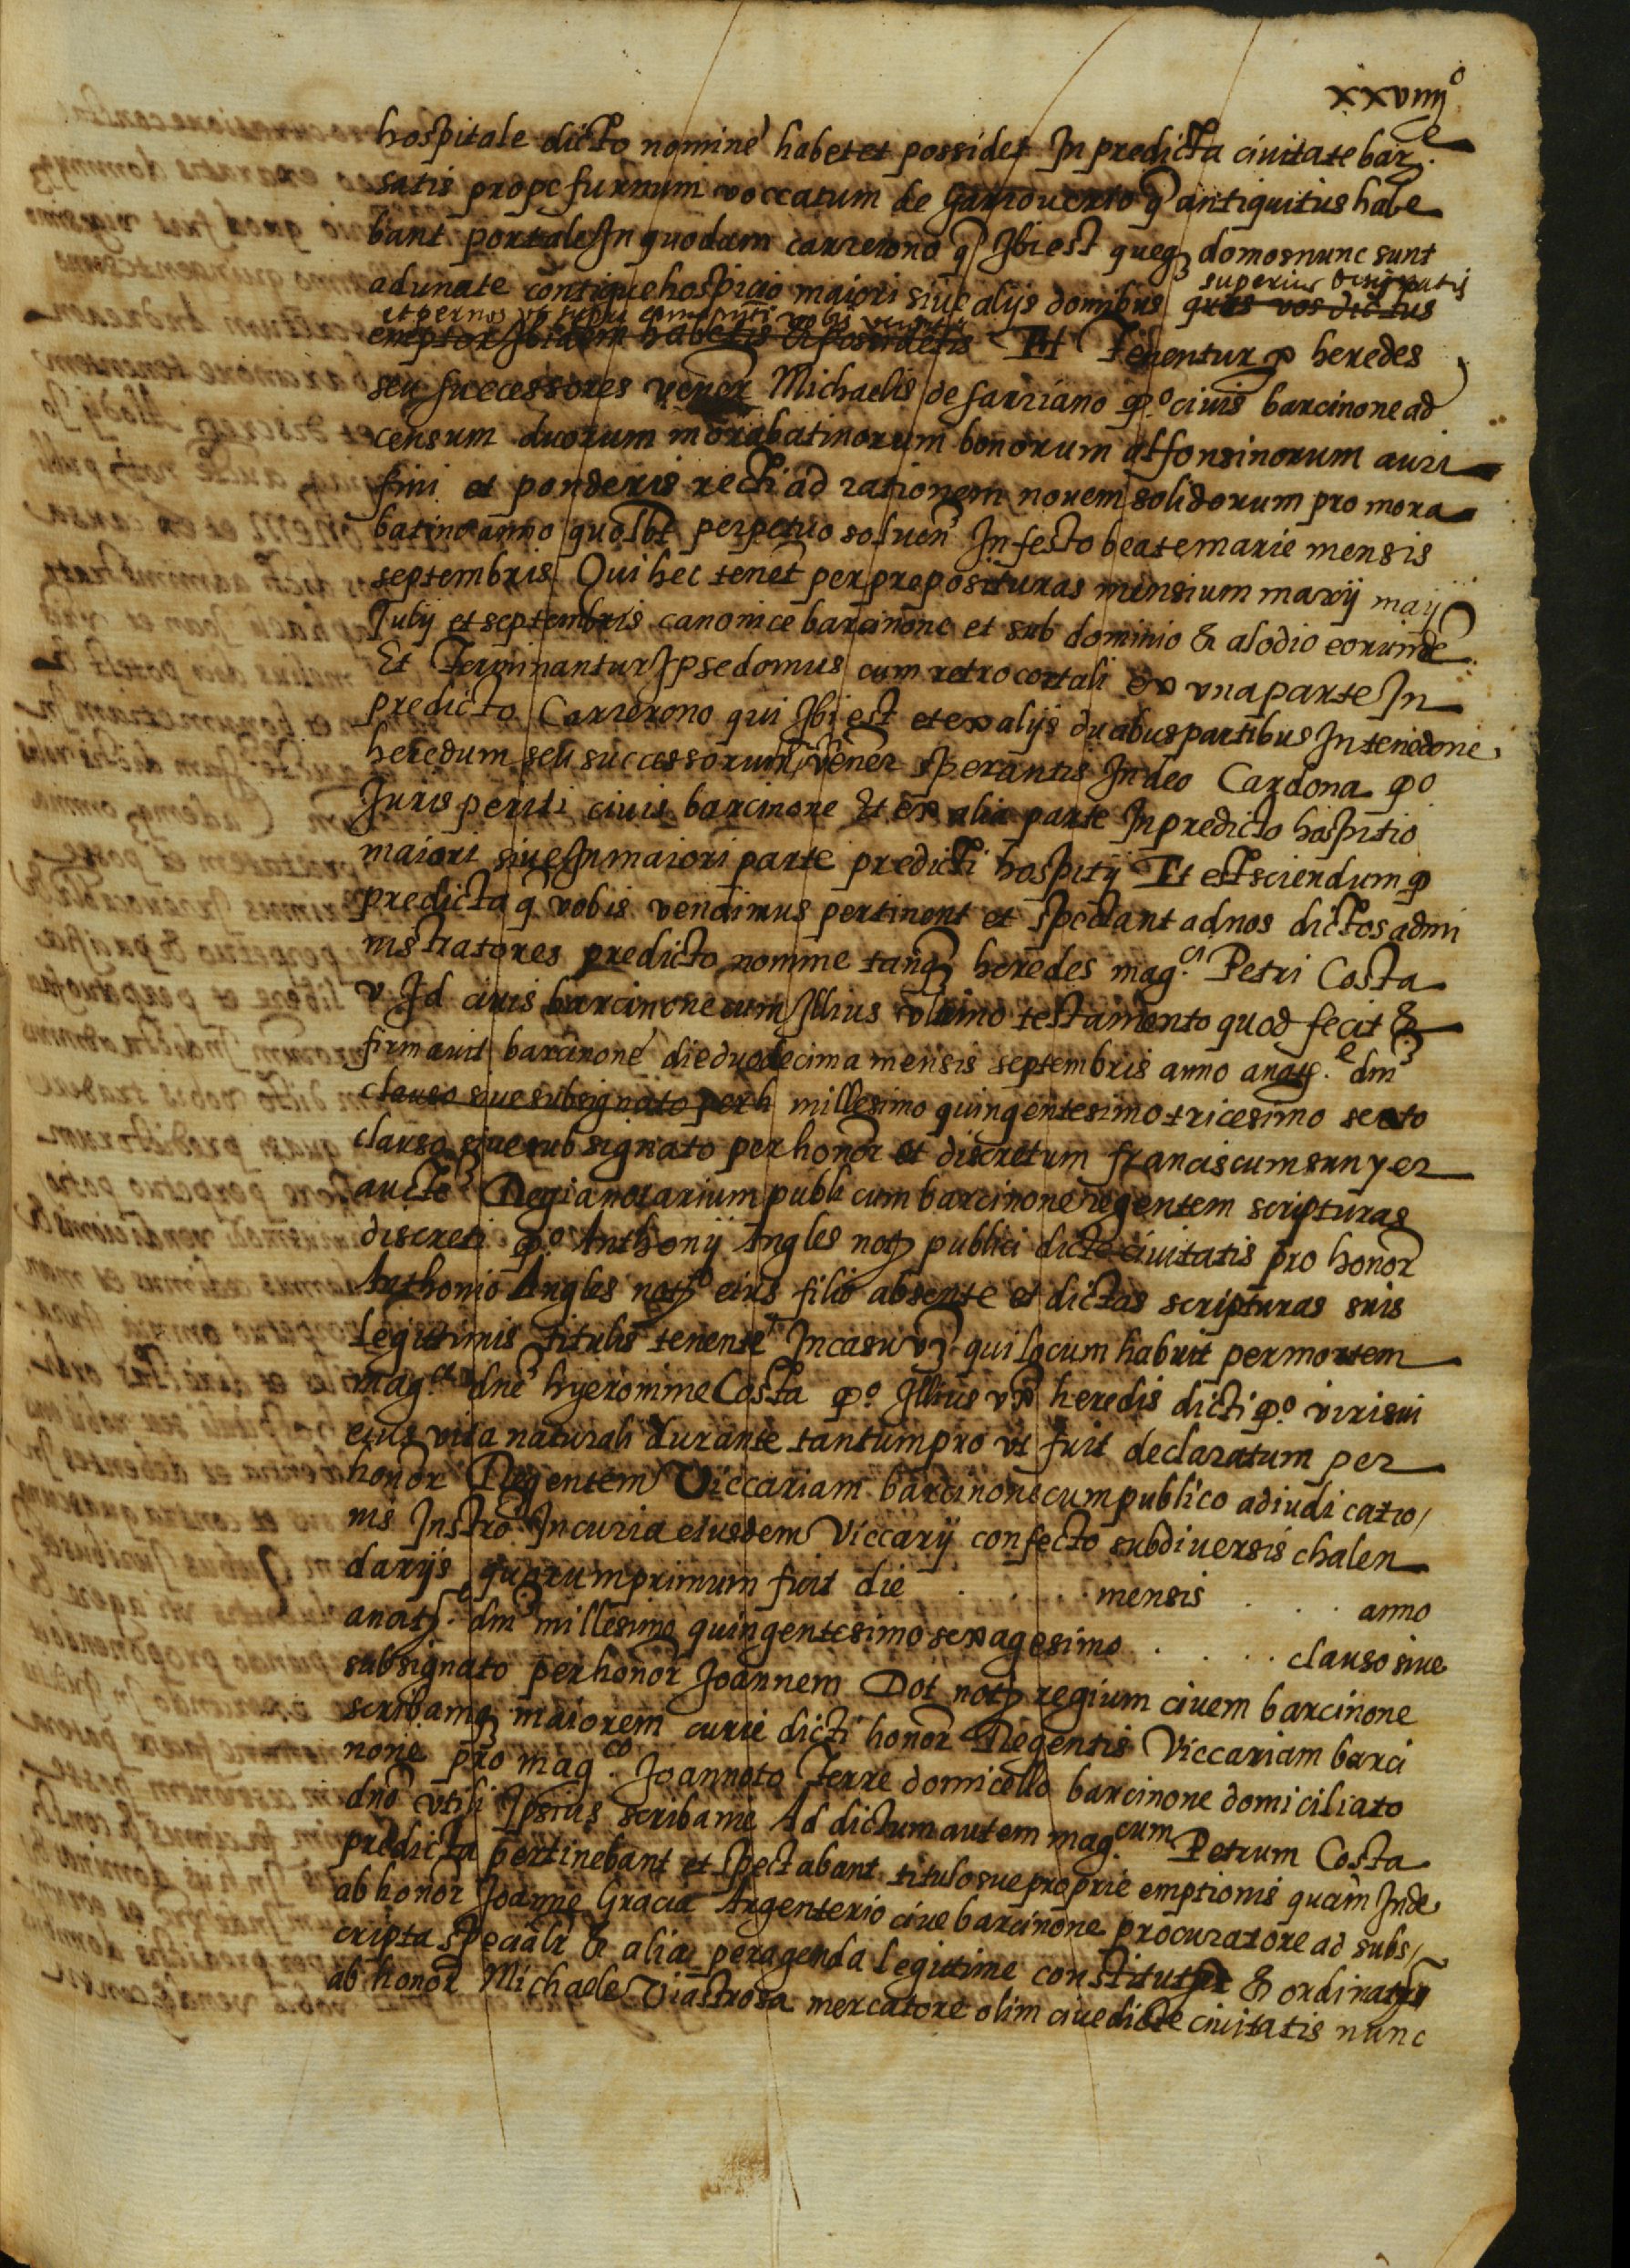 xxviiijº
hospitale dicto nomine habet et possidet In predicta ciuitate barᵉ.
satis prope furnum voccatum de q̃ antiquitus habe
bant portale In quodam carrerono q̃ Ibi est queq₃ domos nunc sunt
superius
adunate contigue hospicio maiori siue alijs domibus quas vos dictus
et per nos vobis
emptor Ibidem habetis et possidetis Et Tenentur p heredes
seu successores veneꝛ Michaelis de sarriano qº ciuis barcinone ad
censum duorum morabatinorum bonorum alfonsinorum auri
fini et ponderis recti ad rationem nouem solidorum pro mora
batino anno quolbt perpetuo soluen̄ In festo beate marie mensis
septembris Qui hec tenet̄ per preposituras mensium marcij maij
Julij et septembris canonice barcinone et sub dominio & alodio eorunde
Et Terminantur Ipse domus cum retrocortali ex vna parte In
predicto Carrerono qui Ibi est et ex alijs duabus partibus In tenedone
heredum seu successorum Veneꝛ Sperantis In deo Cardona qº
Juris periti ciuis barcinone Et ex alia parte In predicto hospitio
maiori siue In maiori parte predicti hospitij Et est sciendum q̃
predicta q̃ vobis vendimus pertinent et spectant ad nos dictos admi
nistratores predicto nomine tanq₃ heredes mag.ci Petri Costa
v Jd ciuis barcinone cum Illius vltimo testamento quod fecit &
firmauit barcinone die duodecima mensis septembris anno anatꝭ.e dm̄
clauso siue subsignato per h millesimo quingentesimo tricesimo sexto
clauso siue subsignato per honoꝛ et discretum franciscum sunyer
aucte Regia notarium publicum barcinone regentem scripturas
discreti qº Anthonij Angles notꝭ publici dicte ciuitatis pro honoꝛ
Anthonio Angles notꝭº eius filio absente et dictas scripturas suis
Legittimis titulis tenente In casu v₃ qui locum habuit per mortem
mag.ce dn̄e hyeronime Costa qº Illius vx̄ heredis dicti qº viri sui
eius vita naturali durante tantum pro vt fuit declaratum per
honoꝛ Regentem Viccariam barcinone cum publico adiudicatio/
nis Instrº In curia eiusdem Viccarij confecto sub diuersis chalen
darijs quorum primum fuit die . . . . mensis . . . anno
anatꝭ.e dm̄ millesimo quingentesimo sexagesimo . . . . clauso siue
subsignato per honoꝛ Joannem Dot notꝭ regium ciuem barcinone
scribamq₃ maiorem curie dicti honoꝛ Regentis Viccariam barci
none pro mag.co Joannoto Terre domicello barcinone domiciliato
dn̄o vtili Ipsius scribanie Ad dictum autem mag.cum Petrum Costa
predicta pertinebant et spectabant titulo sue proprie emptionis quam Inde
ab honoꝛ Joanne Gracia Argenterio ciue barcinone procuratore ad subs/
cripta specialr̄ & alia peragenda legittime constitut & ordinat
ab honoꝛ Michaele Viastrosa mercatore olim ciue dicte ciuitatis nunc